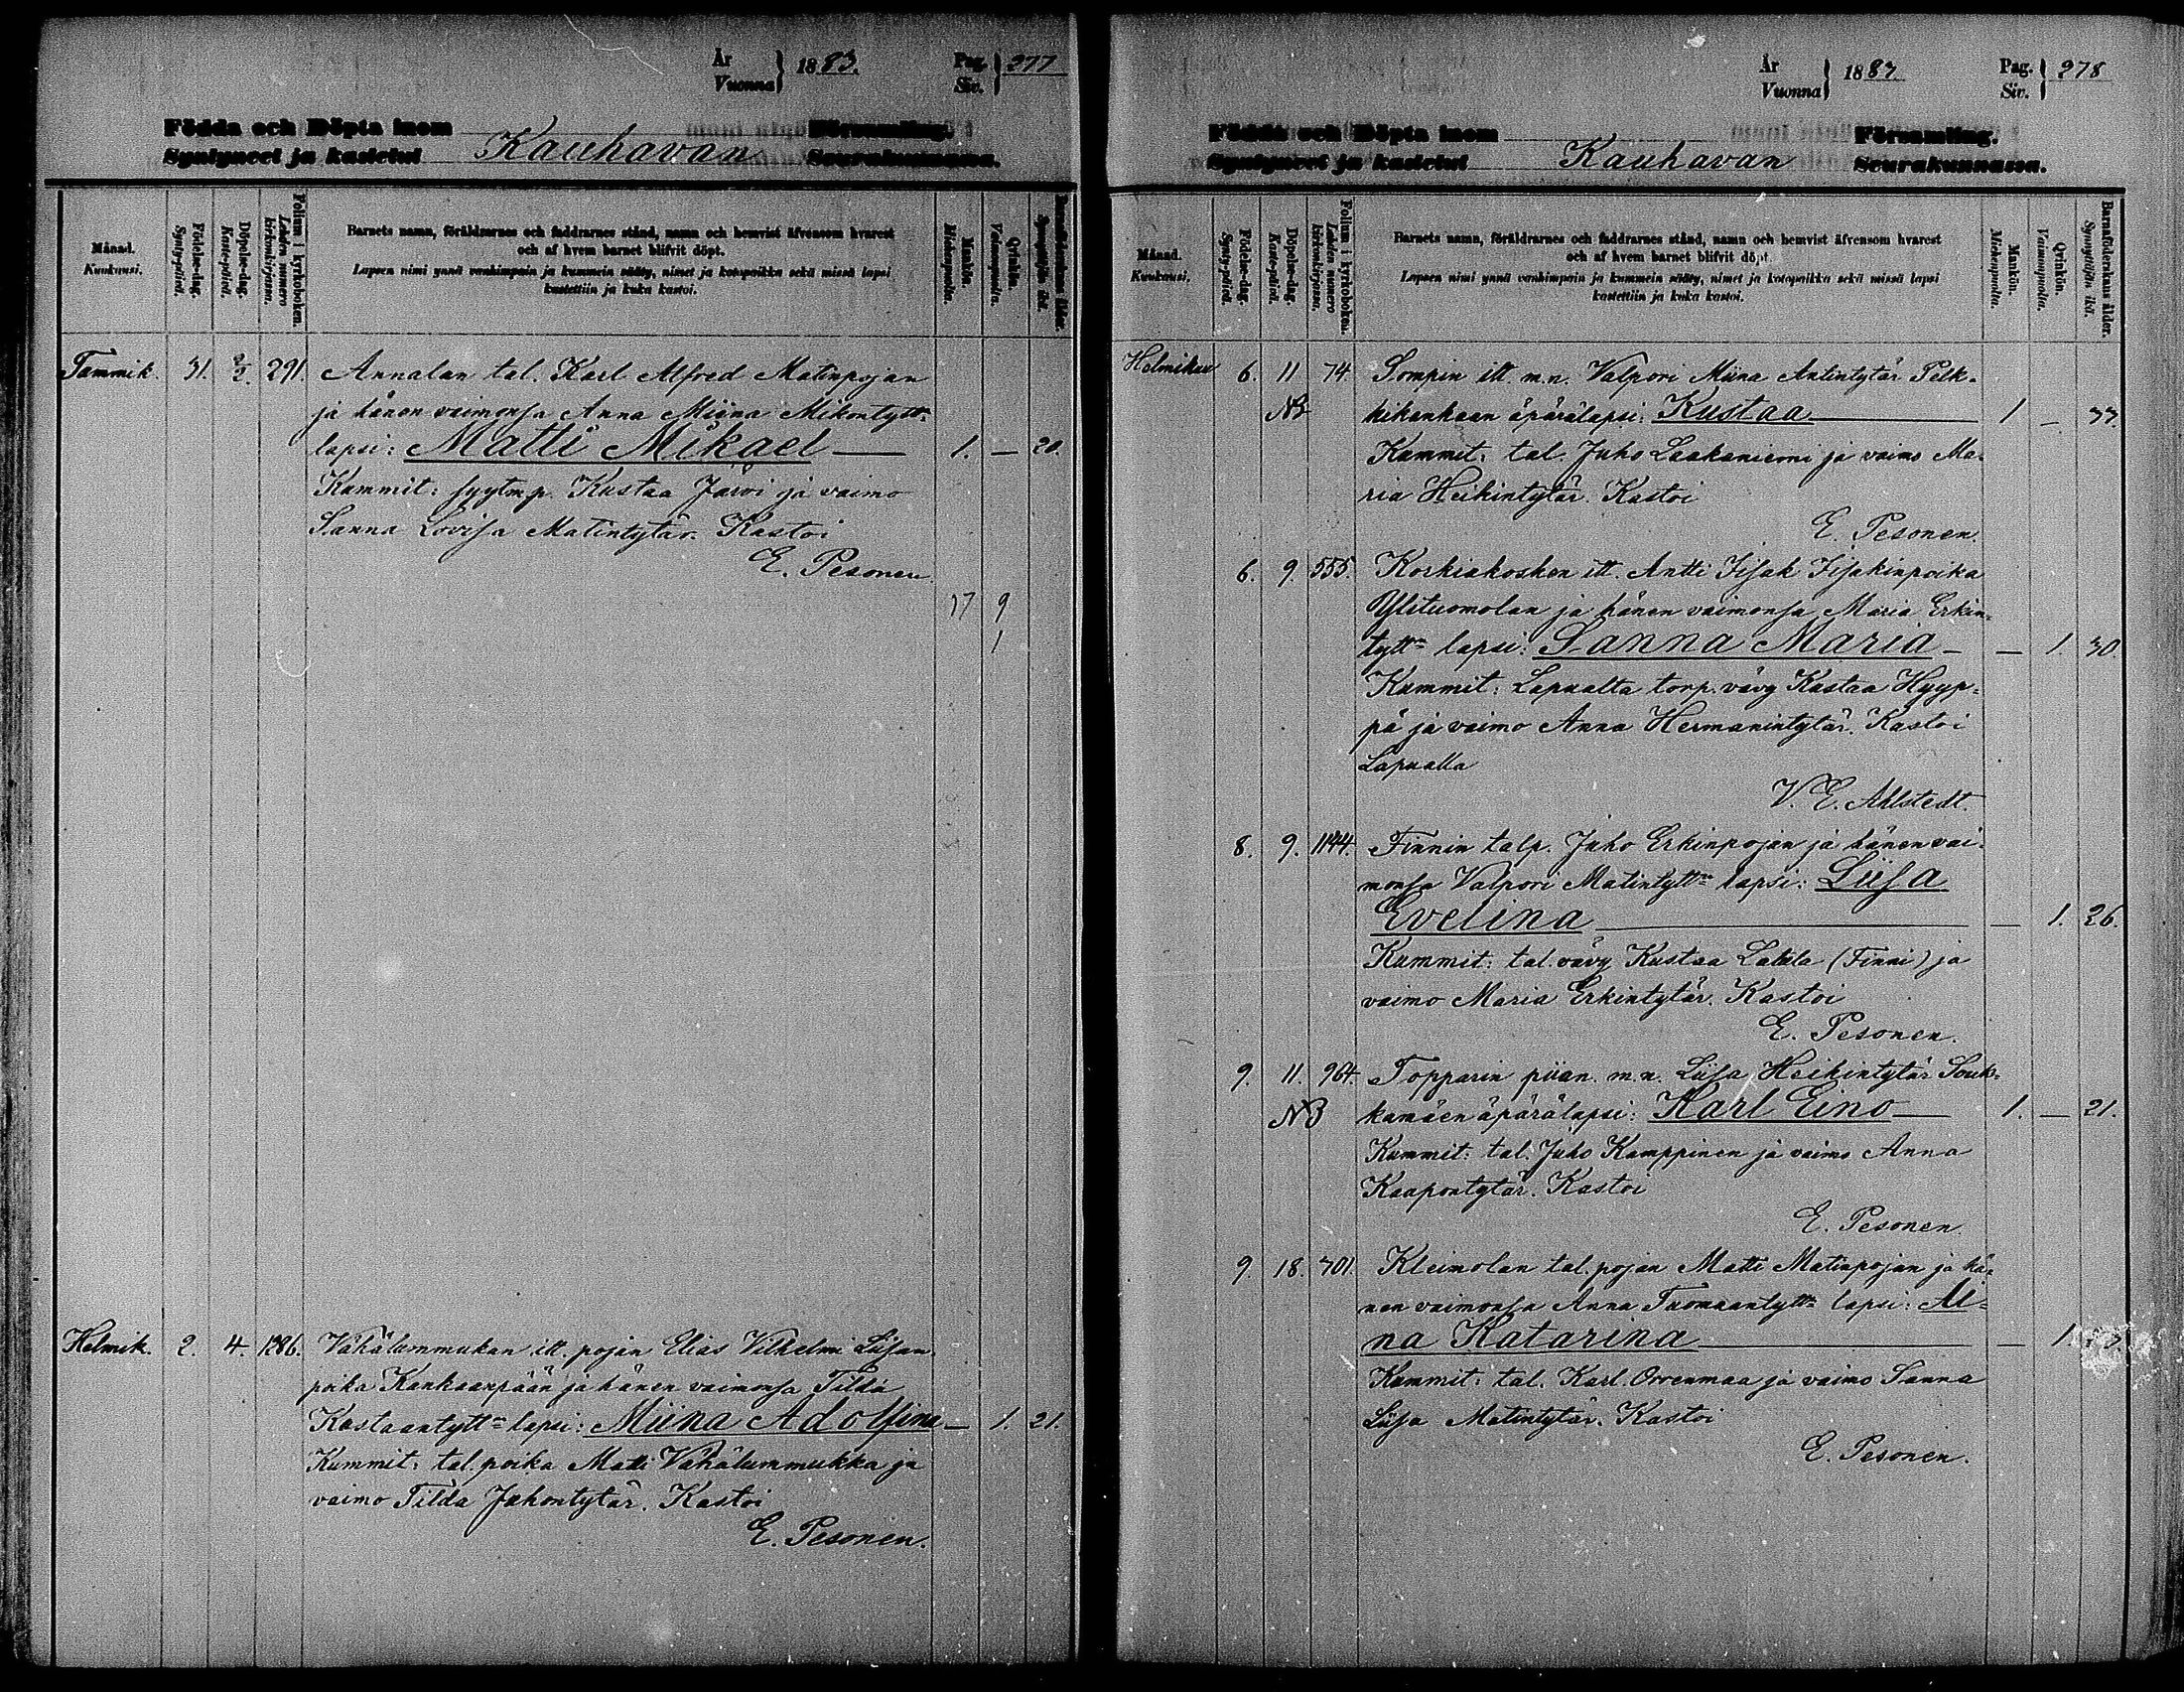 År
Vuonna } 1883. Pag.
Siv. } 277
Födda och Döpta inom Församling.
Syntyneet ja kastetut Kauhavan Seurakunnassa.
Månad.
Kuukausi.
Födelse-dag.
Synty-päivä.
Döpelse-dag.
Kaste-päivä.
Folium i kyrkoboken.
Lehden numero
kirkonkirjassa.
Barnets namn, föräldrarnes och faddrarnes stånd, namn och hemvist äfvensom hvarest
och af hvem barnet blifvit döpt.
Lapsen nimi ynnä vanhimpain ja kummein sääty, nimet ja kotopaikka sekä missä lapsi
kastettiin ja kuka kastoi.
Mankön.
Miehenpuolta.
Qvinkön.
Vaimonpuolta.
Barnaföderskans ålder.
Synnyttäjän ikä.
Tammik. 31. 2/2. 291. Annalan tal. Karl Alfred Matinpojan
ja hänen vaimonsa Anna Miina Mikontytt=
lapsi: Matti Mikael — 1. — 20.
Kummit: syytm.p. Kustaa Järvi ja vaimo
Sanna Lovisa Matintytär. Kastoi
E. Pesonen.
17 9
1
Helmik. 2. 4. 1286. Vähälummukan itt. pojan Elias Vilhelmi Liisan
poika Kankaanpään ja hänen vaimonsa Tilda
Kustaantytt= lapsi: Miina Adolfina — 1. 21.
Kummit: tal. poika Matti Vähälummukka ja
vaimo Tilda Juhontytär. Kastoi
E. Pesonen.
År
Vuonna } 1883 Pag.
Siv. } 278
Födda och Döpta inom Församling.
Syntyneet ja kastetut Kauhavan Seurakunnassa.
Månad.
Kuukausi.
Födelse-dag.
Synty-päivä.
Döpelse-dag.
Kaste-päivä.
Folium i kyrkoboken.
Lehden numero
kirkonkirjassa.
Barnets namn, föräldrarnes och faddrarnes stånd, namn och hemvist äfvensom hvarest
och af hvem barnet blifvit döpt.
Lapsen nimi ynnä vanhimpain ja kummein sääty, nimet ja kotopaikka sekä missä lapsi
kastettiin ja kuka kastoi.
Mankön.
Miehenpuolta.
Qvinkön.
Vaimonpuolta.
Barnaföderskans ålder.
Synnyttäjän ikä.
Helmikuu 6. 11 74. Sompin itt. m.n. Valpori Miina Antintytär Pelk=
NB kikankaan äpärälapsi: Kustaa — 1 — 37.
Kummit: tal. Juho Laakaniemi ja vaimo Ma=
ria Heikintytär. Kastoi
E. Pesonen.
6. 9. 555. Korkiakosken itt. Antti Iisak Iisakinpoika
Ylituomolan ja hänen vaimonsa Maria Erkin=
tytt= lapsi: Sanna Maria — — 1. 30.
Kummit: Lapualta torp. vävy Kustaa Hyyp=
pä ja vaimo Anna Hermanintytär. Kastoi
Lapualla
V. E. Ahlstedt.
8. 9. 1144. Finnin talp. Juho Erkinpojan ja hänen vai=
monsa Valpori Matintytt= lapsi: Liisa
Evelina — — 1. 26.
Kummit: tal. vävy Kustaa Lahla (Finni) ja
vaimo Maria Erkintytär. Kastoi
E. Pesonen.
9. 11. 964. Topparin piian m.n. Liisa Heikintytär Souk=
NB kamäen äpärälapsi: Karl Eino — 1. — 21.
Kummit: tal. Juho Kamppinen ja vaimo Anna
Kaapontytär. Kastoi
E. Pesonen.
9. 18. 701. Kleimolan tal. pojan Matti Matinpojan ja hä=
nen vaimonsa Anna Tuomaantytt= lapsi: Al=
na Katarina — — 1.
Kummit: tal. Karl Orrenmaa ja vaimo Sanna
Liisa Matintytär. Kastoi
E. Pesonen.